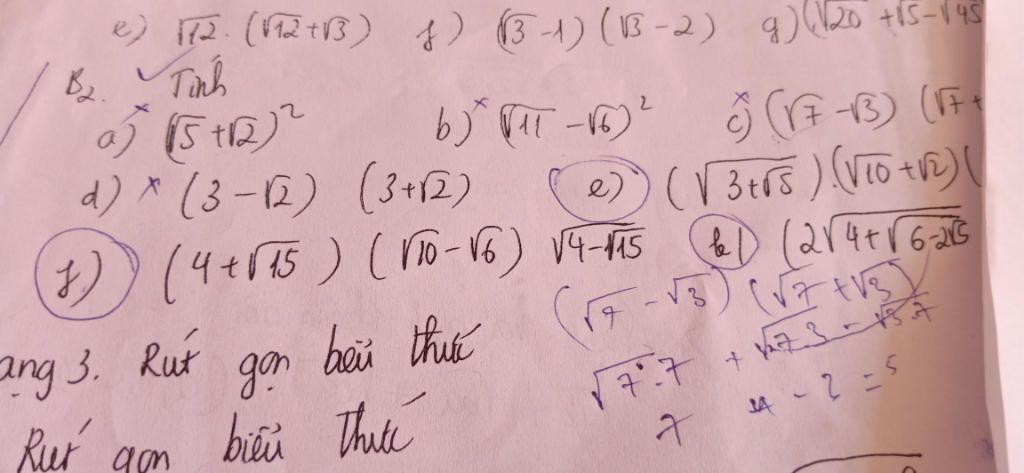 e) √12 . (√12+√3) f) (√3 -1) (√3 - 2) g) (√20 +√5-√45
B₂. Tính
a) (√5 +√2)² b) (√11 -√6)² c) (√7 -√3) (√7 +
d) (3 -√2) (3+√2) e) (√3+√5).(√10 +√2)(
f) (4 +√15) (√10-√6) √4-√15 (2√4+√6-2√5
(√7 -√3) (√7 +√3)
√7.7 + √7.3 - √3.7
7
ạng 3. Rút gọn biểu thức
Rút gọn biểu thức